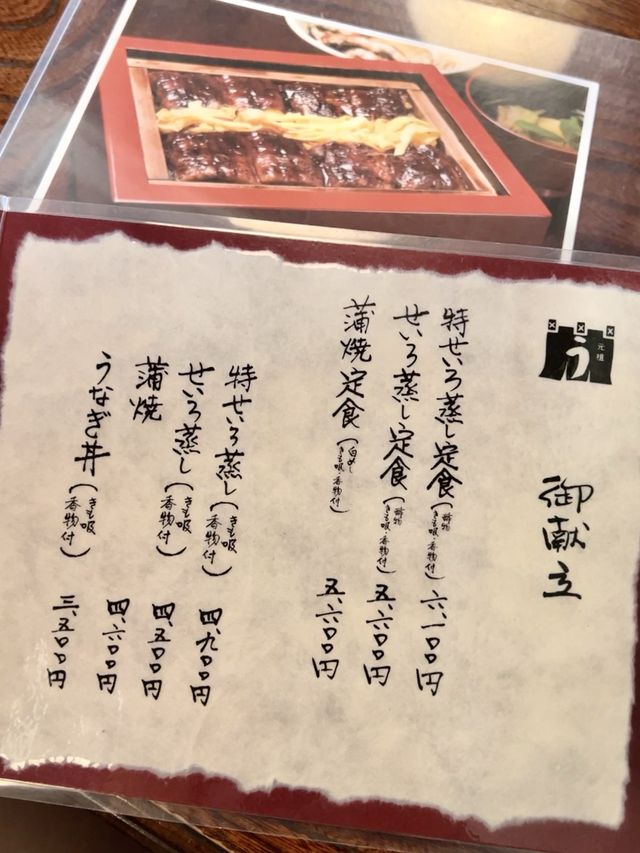 元祖
う
御献立
特せいろ蒸し定食(酢物 きも吸・香物付) 六、一〇〇円
せいろ蒸し定食(酢物 きも吸・香物付) 五、六〇〇円
蒲焼定食(白めし きも吸・香物付) 五、六〇〇円
特せいろ蒸し(きも吸 香物付) 四、九〇〇円
せいろ蒸し(きも吸 香物付) 四、五〇〇円
蒲焼 四、六〇〇円
うなぎ丼(きも吸 香物付) 三、五〇〇円